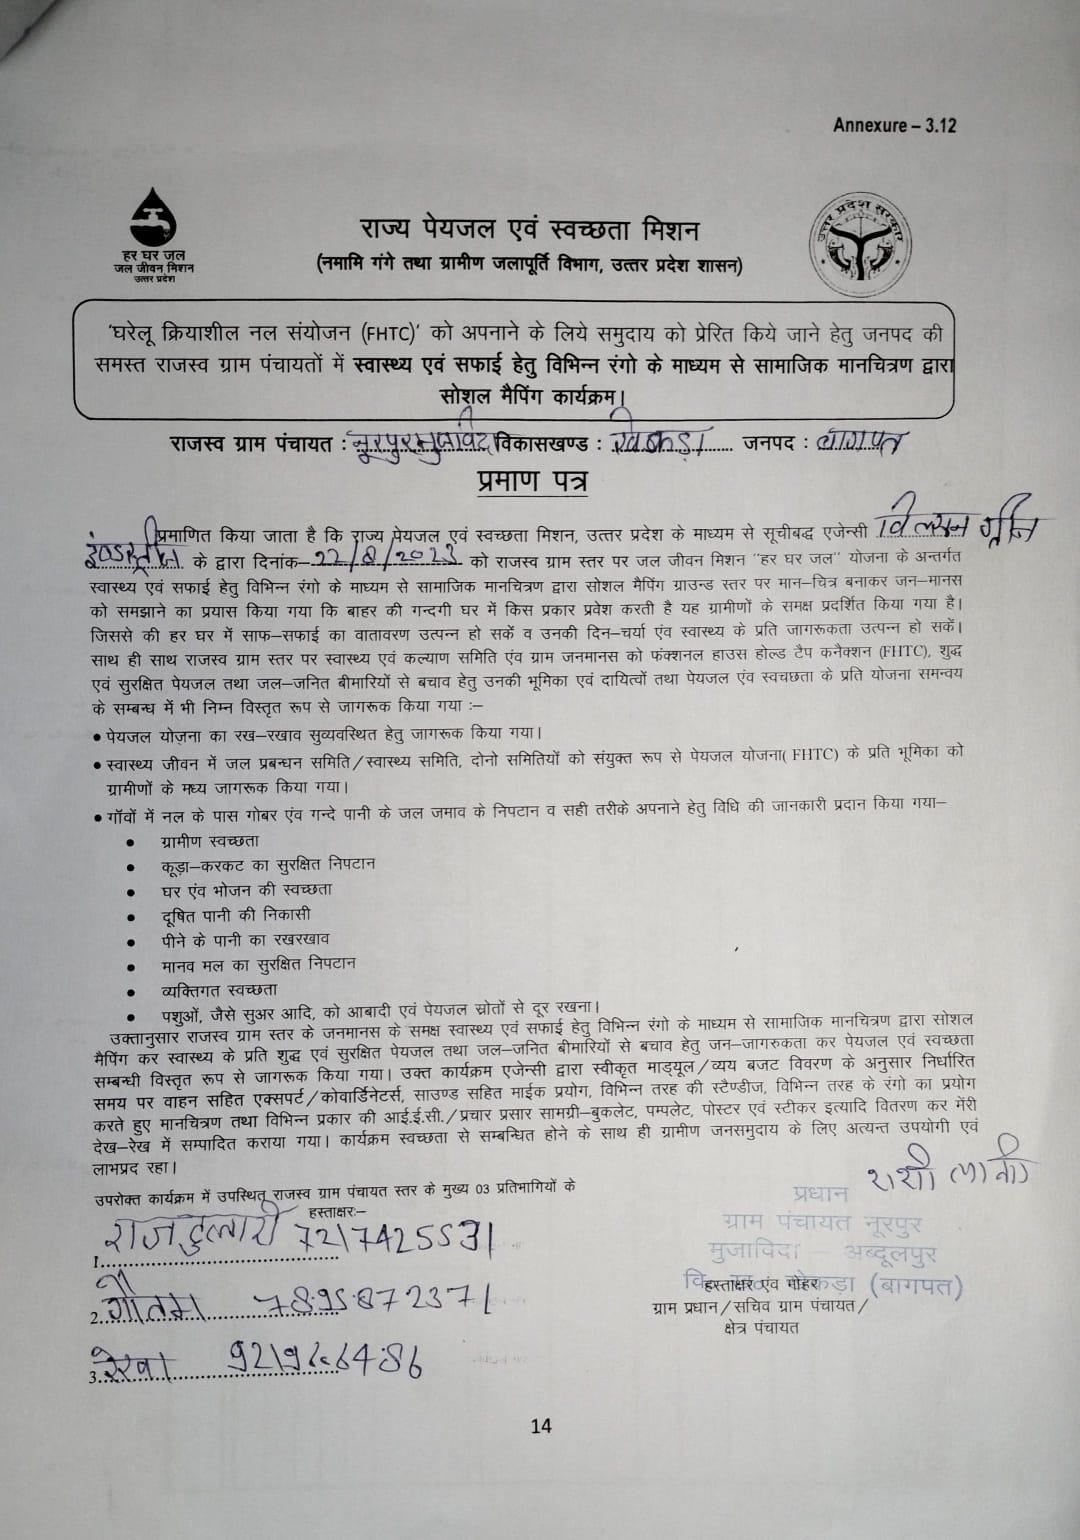 Annexure – 3.12
हर घर जल
जल जीवन मिशन
उत्तर प्रदेश
राज्य पेयजल एवं स्वच्छता मिशन
(नमामि गंगे तथा ग्रामीण जलापूर्ति विभाग, उत्तर प्रदेश शासन)
उत्तर प्रदेश सरकार
'घरेलू क्रियाशील नल संयोजन (FHTC)' को अपनाने के लिये समुदाय को प्रेरित किये जाने हेतु जनपद की
समस्त राजस्व ग्राम पंचायतों में स्वास्थ्य एवं सफाई हेतु विभिन्न रंगो के माध्यम से सामाजिक मानचित्रण द्वारा
सोशल मैपिंग कार्यक्रम।
राजस्व ग्राम पंचायत : नूरपुरमुजाविदा विकासखण्ड : खेकड़ा जनपद : बागपत
प्रमाण पत्र
प्रमाणित किया जाता है कि राज्य पेयजल एवं स्वच्छता मिशन, उत्तर प्रदेश के माध्यम से सूचीबद्ध एजेन्सी विल्सन ग्रीन
इण्डस्ट्रीज के द्वारा दिनांक–22/8/2023 को राजस्व ग्राम स्तर पर जल जीवन मिशन "हर घर जल" योजना के अन्तर्गत
स्वास्थ्य एवं सफाई हेतु विभिन्न रंगो के माध्यम से सामाजिक मानचित्रण द्वारा सोशल मैपिंग ग्राउन्ड स्तर पर मान–चित्र बनाकर जन–मानस
को समझाने का प्रयास किया गया कि बाहर की गन्दगी घर में किस प्रकार प्रवेश करती है यह ग्रामीणों के समक्ष प्रदर्शित किया गया है।
जिससे की हर घर में साफ–सफाई का वातावरण उत्पन्न हो सकें व उनकी दिन–चर्या एंव स्वास्थ्य के प्रति जागरूकता उत्पन्न हो सकें।
साथ ही साथ राजस्व ग्राम स्तर पर स्वास्थ्य एवं कल्याण समिति एंव ग्राम जनमानस को फंक्शनल हाउस होल्ड टैप कनैक्शन (FHTC), शुद्ध
एवं सुरक्षित पेयजल तथा जल–जनित बीमारियों से बचाव हेतु उनकी भूमिका एवं दायित्वों तथा पेयजल एंव स्वचछता के प्रति योजना समन्वय
के सम्बन्ध में भी निम्न विस्तृत रूप से जागरूक किया गया :–
• पेयजल योजना का रख–रखाव सुव्यवस्थित हेतु जागरूक किया गया।
• स्वास्थ्य जीवन में जल प्रबन्धन समिति/स्वास्थ्य समिति, दोनो समितियों को संयुक्त रूप से पेयजल योजना( FHTC) के प्रति भूमिका को
ग्रामीणों के मध्य जागरूक किया गया।
• गॉवों में नल के पास गोबर एंव गन्दे पानी के जल जमाव के निपटान व सही तरीके अपनाने हेतु विधि की जानकारी प्रदान किया गया–
• ग्रामीण स्वच्छता
• कूड़ा–करकट का सुरक्षित निपटान
• घर एंव भोजन की स्वच्छता
• दूषित पानी की निकासी
• पीने के पानी का रखरखाव
• मानव मल का सुरक्षित निपटान
• व्यक्तिगत स्वच्छता
• पशुओं, जैसे सुअर आदि, को आबादी एवं पेयजल स्रोतों से दूर रखना।
उक्तानुसार राजस्व ग्राम स्तर के जनमानस के समक्ष स्वास्थ्य एवं सफाई हेतु विभिन्न रंगो के माध्यम से सामाजिक मानचित्रण द्वारा सोशल
मैपिंग कर स्वास्थ्य के प्रति शुद्ध एवं सुरक्षित पेयजल तथा जल–जनित बीमारियों से बचाव हेतु जन–जागरुकता कर पेयजल एवं स्वच्छता
सम्बन्धी विस्तृत रूप से जागरूक किया गया। उक्त कार्यक्रम एजेन्सी द्वारा स्वीकृत माड्यूल/व्यय बजट विवरण के अनुसार निर्धारित
समय पर वाहन सहित एक्सपर्ट/कोवार्डिनेटर्स, साउण्ड सहित माईक प्रयोग, विभिन्न तरह की स्टैण्डीज, विभिन्न तरह के रंगो का प्रयोग
करते हुए मानचित्रण तथा विभिन्न प्रकार की आई.ई.सी./प्रचार प्रसार सामग्री–बुकलेट, पम्पलेट, पोस्टर एवं स्टीकर इत्यादि वितरण कर मेंरी
देख–रेख में सम्पादित कराया गया। कार्यक्रम स्वच्छता से सम्बन्धित होने के साथ ही ग्रामीण जनसमुदाय के लिए अत्यन्त उपयोगी एवं
लाभप्रद रहा।
उपरोक्त कार्यक्रम में उपस्थित राजस्व ग्राम पंचायत स्तर के मुख्य 03 प्रतिभागियों के
हस्ताक्षरः–
1. राजदुलारी 7217425531
2. गौतम 7895872371
3. रेखा
राशी
प्रधान
ग्राम पंचायत नूरपुर
मुजाविदा – अब्दूलपुर
खेकड़ा (बागपत)
हस्ताक्षर एंव मोहर
ग्राम प्रधान/सचिव ग्राम पंचायत/
क्षेत्र पंचायत
14